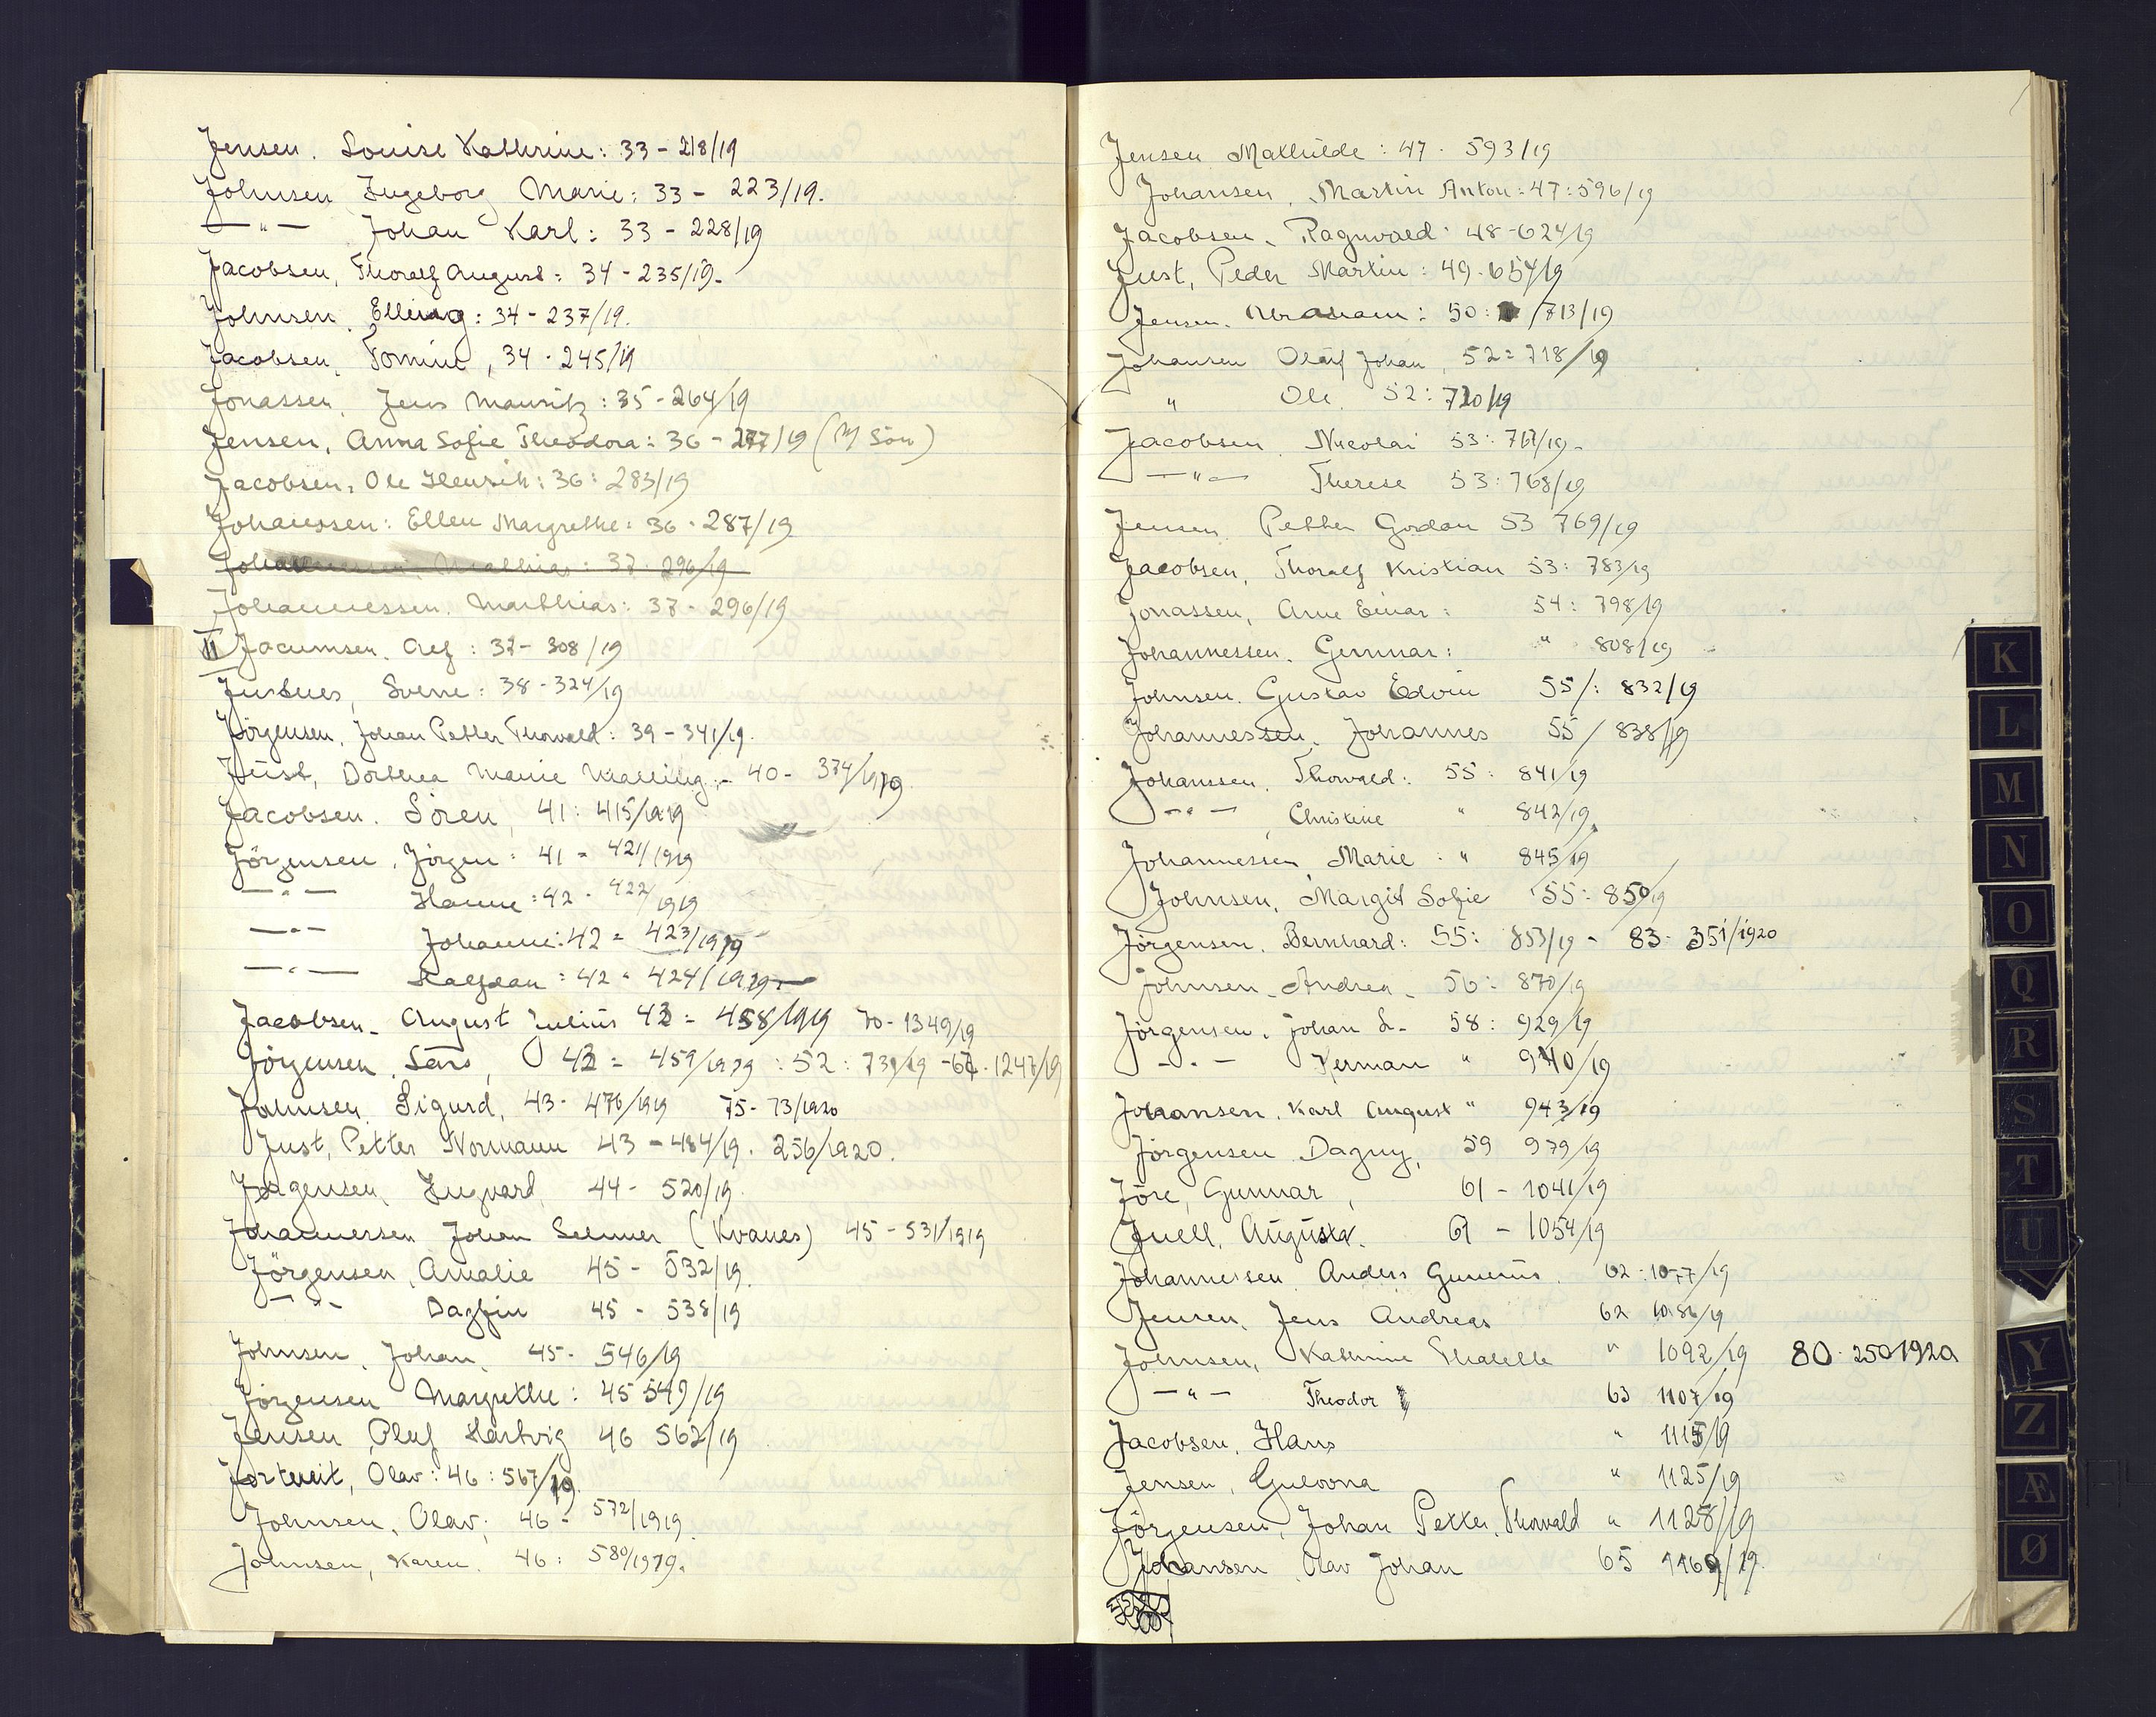 Jensen. Louise Kathrine: 33 - 218/19
Johnsen Ingeborg Marie: 33 - 223/19.
— " — Johan Karl: 33 - 228/19
Jacobsen, Thoralf August: 34 - 235/19.
Johnsen, Elling: 34 - 237/19.
Jacobsen, Tomine, 34 - 245/19
Jonassen, Jens Mauritz: 35 - 264/19
Jensen, Anna Sofie Theodora: 36 - 277/19 (M Sön)
Jacobsen, Ole Henrik: 36: 283/19
Johanssen: Ellen Margrethe: 36 - 287/19
37 - 296/19
Johannessen. Matthias: 37 - 296/19
Jacumsen. Alf: 37 - 308/19
Justnes, Sverre: 38 - 324/19
Jörgensen, Johan Petter Thorvald: 39 - 341/19.
Jüst, Dorthea Marie Malling: - 40 - 374/1919.
Jacobsen. Sören, 41: 415/1919
Jörgensen, Jörgen: 41 = 421/1919
— " — Hanne: 42 - 422/1919
— " — Johanne: 42 = 423/1919
— " — Halfdan: 42 - 424/1919
Jacobsen. August Julius 42 = 458/1919 70 - 1349/19
Jörgensen, Lars, 42 = 459/1919: 52: 731/19 - 67. 1247/19
Johnsen, Sigurd, 43 - 476/1919 75 - 73/1920
Just, Petter Normann 43 - 484/19. 256/1920.
Jörgensen, Ingvard, 44 - 520/19.
Johannersen Johan Selmer (Kvanes) 45 - 531/1919
Jörgensen, Amalie 45 - 532/19.
— " — Dagfin 45 - 538/19
Johnsen, Johan, 45 - 546/19
Jörgensen Margrethe: 45 549/19
Jensen Oluf Hartvig 46 562/19
Jortveit, Olav: 46: 567/19.
Johnsen, Olav; 46 - 572/1919
Johnsen, Karen. 46: 580/1919.
Jensen Mathilde: 47 - 593/19
Johansen, Martin Anton: 47: 596/19
Jacobsen, Ragnvald: 48 - 624/19
Just, Peder Martin: 49 - 654/19
Jensen. Abraham: 50: /713/19
Johansen Olaf Johan, 52 = 718/19
" Ole. 52: 720/19
Jacobsen, Nicolai 53: 767/19.
— " — Therese 53: 768/19
Jensen Petter Gordon 53 769/19
Jacobsen, Thoralf Kristian 53: 783/19
Jonassen, Arne Einar: 54: 798/19
Johannessen. Gunnar: " 808/19
Johnsen. Gustav Edvin 55/: 832/19
Johannessen, Johannes 55/ 838/19
Johanssen, Thorvald: 55: 841/19
— " — Christine " 842/19
Johannessen Marie: " 845/19
Johnsen, Margit Sofie 55: 850/19
Jörgensen. Bernhard: 55: 853/19 - 83 - 351/1920
Johnsen, Andrea. 56: 870/19
Jörgensen, Johan L. 58: 929/19
— " — Herman " 940/19
Johansen, Karl August " 943/19
Jörgensen Dagny, 59 979/19
Jöre, Gunnar, 61 - 1041/19
Juell, Augusta. 61 - 1054/19
Johannessen Anders Gunerius. 62: 1077/19
Jensen, Jens Andreas 62 1086/19
Johnsen, Kathrine Thalette " 1092/19 80 - 250 1920
— " — Theodor 63 1107/19
Jacobsen, Hans " 1115/19
Jensen, Gulovna " 1125/19
Jörgensen, Johan Petter Thorvald " 1128/19
Johansen Olav Johan 65 1169/19.
K
L
M
N
O
Q
R
S
T
U
Y
Z
Æ
Ø